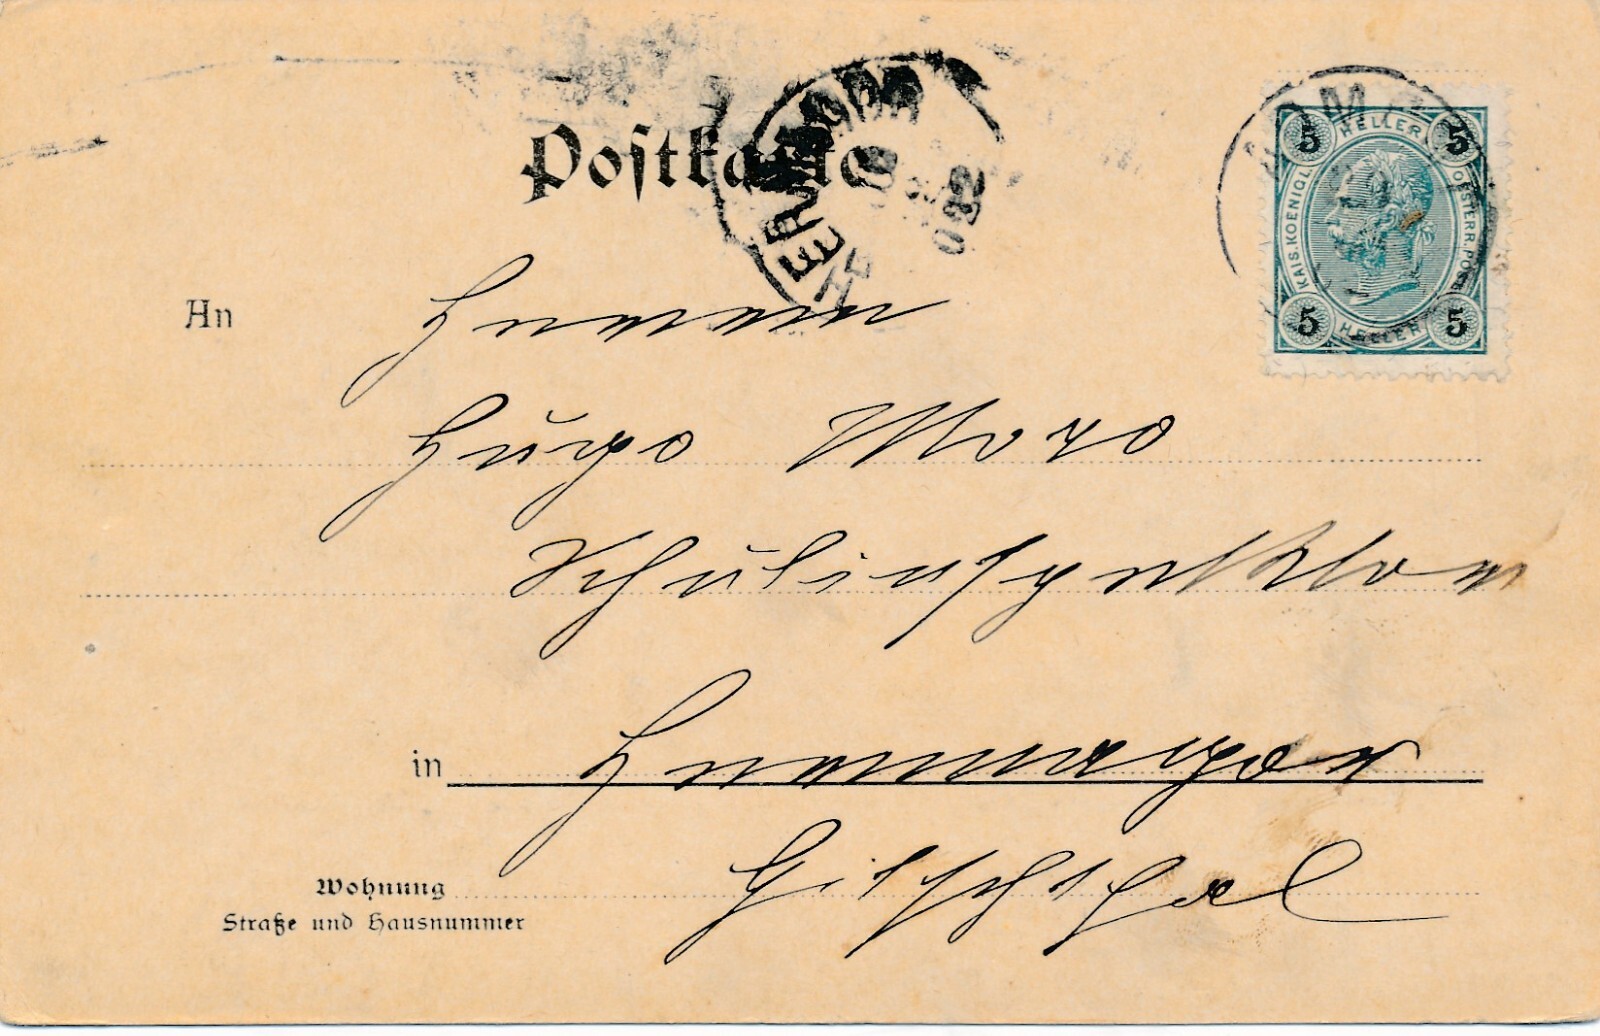 Postkarte
5 HELLER 5
KAIS. KOENIGL. OESTERR. POST
5 HELLER 5
An
Herrn
Hugo Moro
Schulinspektor
in Hermagor
Gitschthal
Wohnung
Straße und Hausnummer